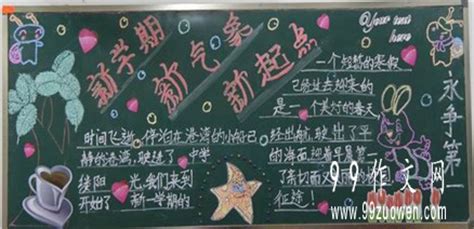 新学期
新气象
新起点
Your text
here
一个短暂的寒假
已经过去迎来的
是一个美好的春天
永争第一
时间飞逝,伴泊在港湾的小船已
静的港湾,驶进了中学
缕阳光,我们来到
开始了新一学期的
经出航,驶出了平
的海面,迎着早晨第一
了亲切而又
征途!
99作文网
www.99zuowen.com